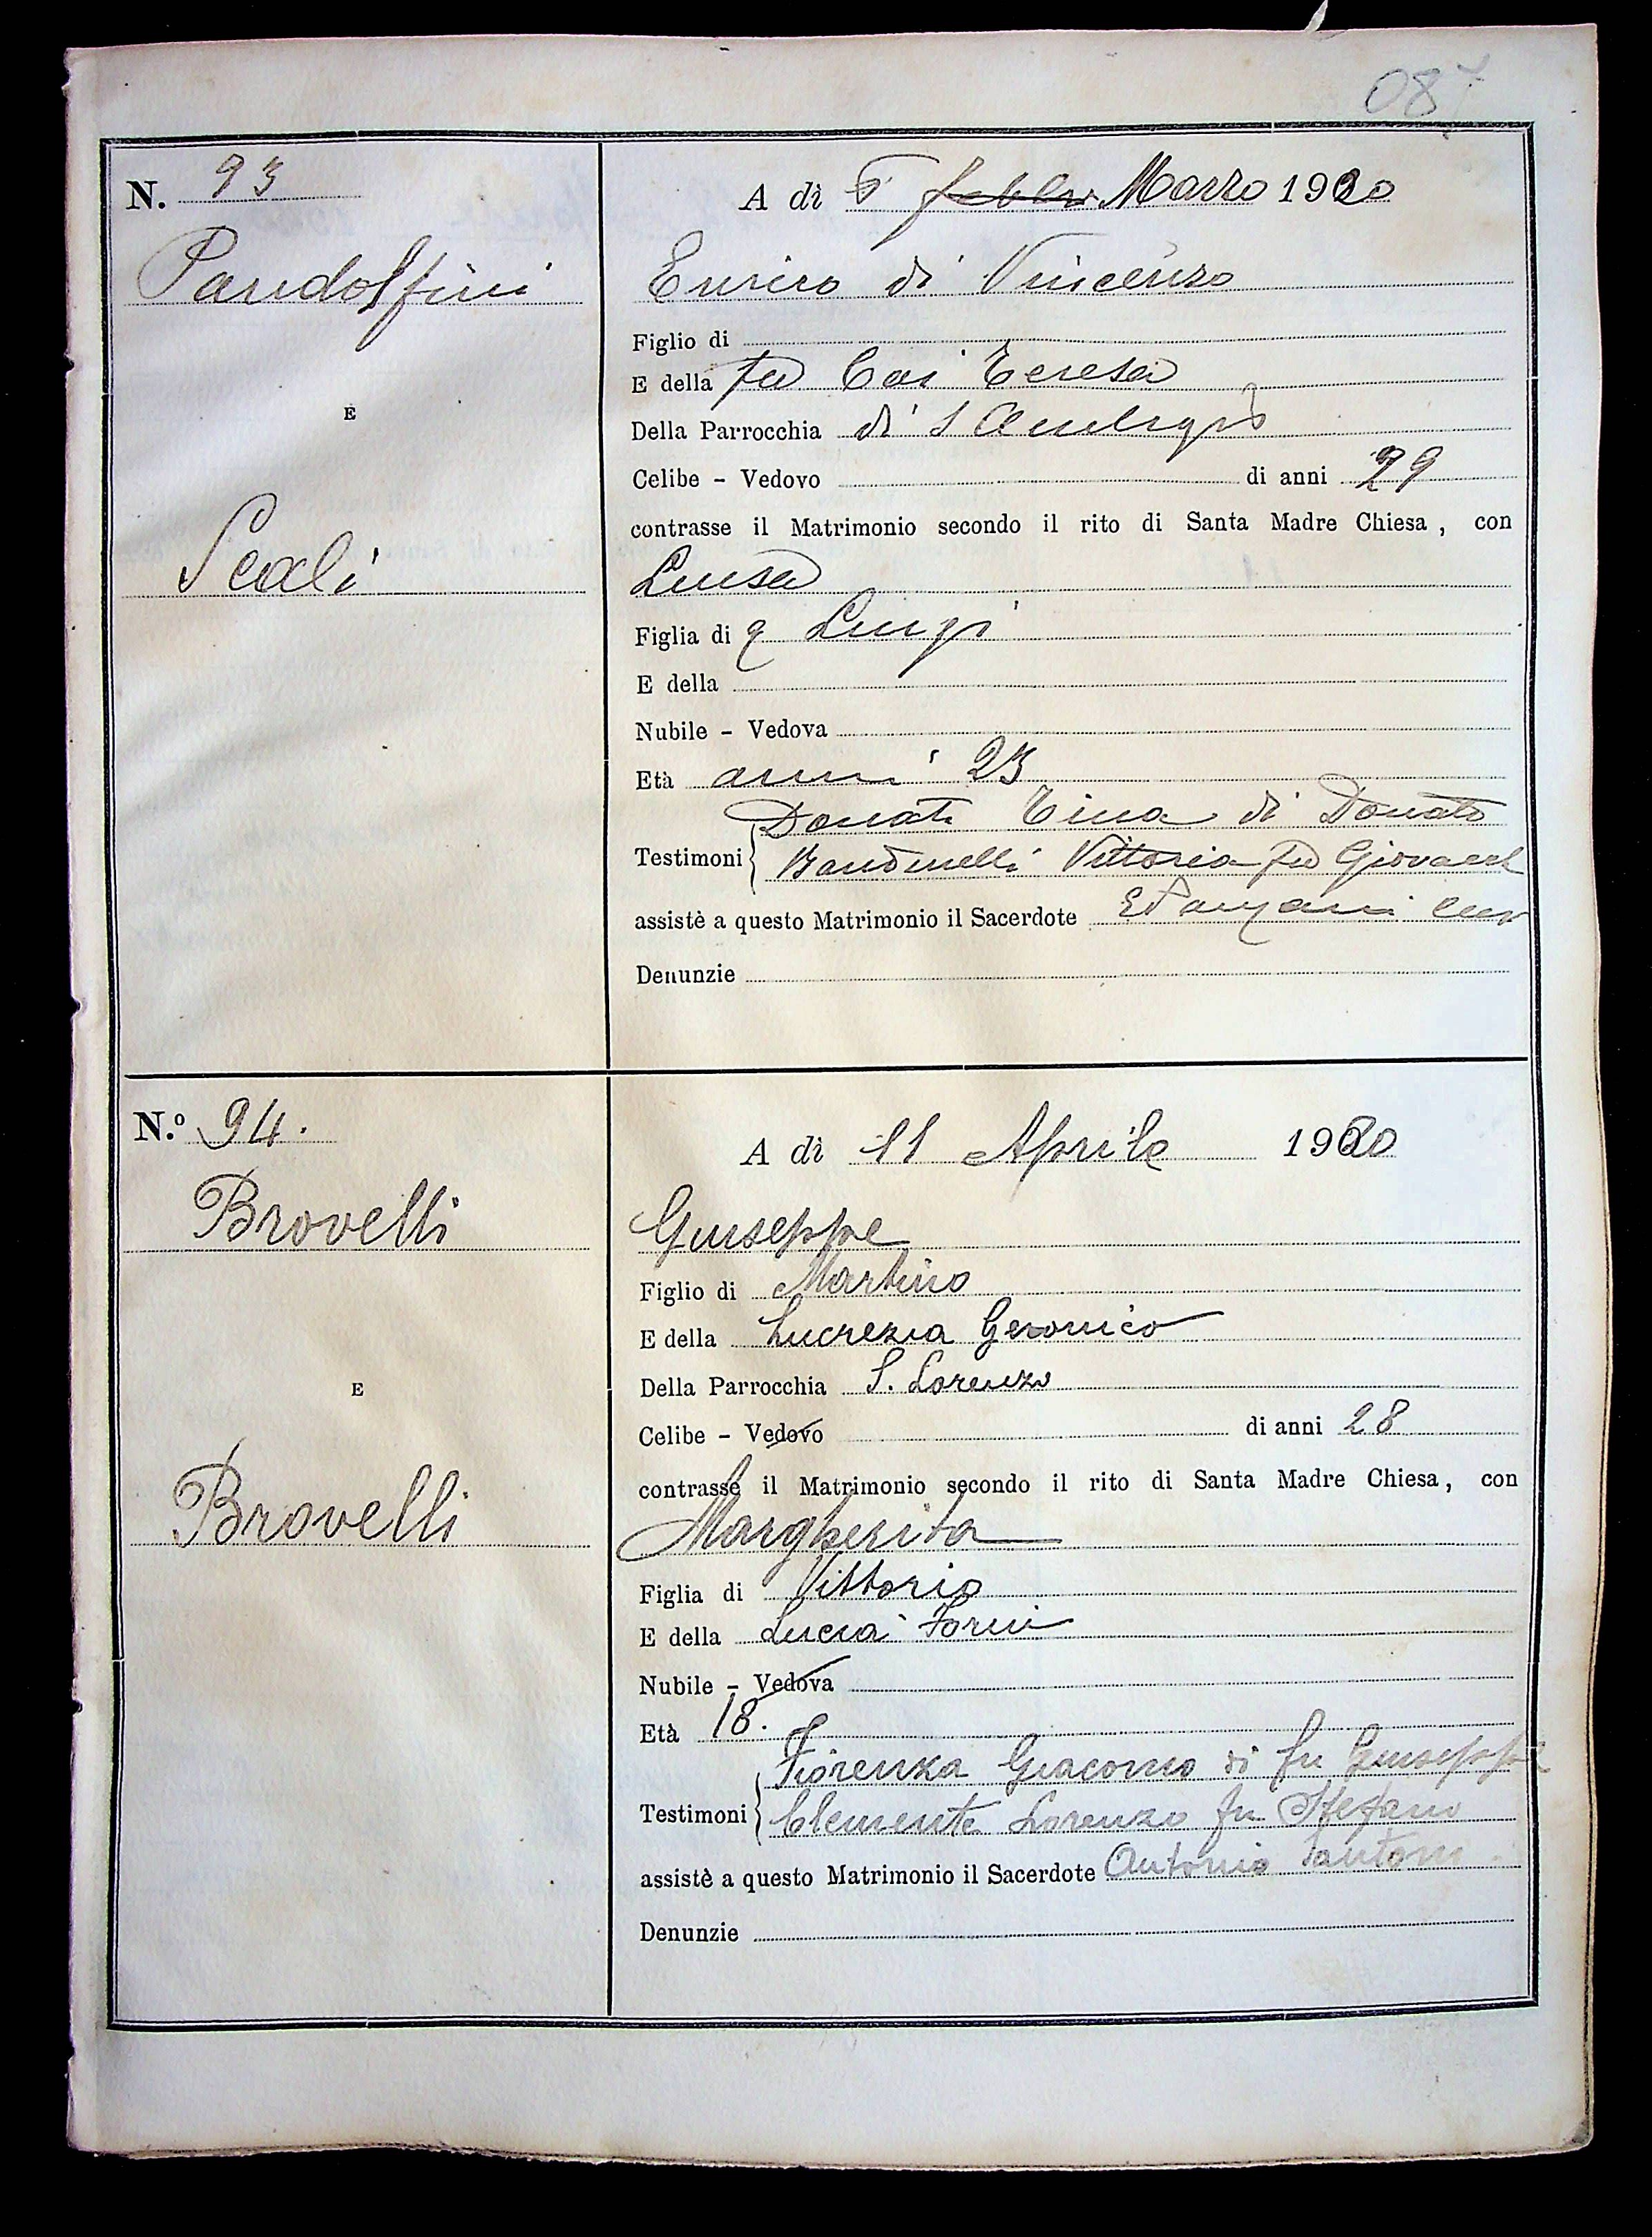 087
N. 93
A dì 5 febbr Marzo 1920
Pandolfini
Enrico di Vincenzo
Figlio di
E della fu Cai Teresa
E
Della Parrocchia di S Ambrgio
Celibe - Vedovo di anni 29
contrasse il Matrimonio secondo il rito di Santa Madre Chiesa, con
Scali
Luisa
Figlia di q Luigi
E della
Nubile - Vedova
Età anni 23
Donati Tina di Donato
Testimoni Bandinelli Vittoria fu Giovanni
assistè a questo Matrimonio il Sacerdote
Denunzie
N.º 94.
A dì 11 Aprile 1920
Brovelli
Giuseppe
Figlio di Martino
E della Lucrezia Geronico
E
Della Parrocchia S. Lorenzo
Celibe - Vedovo di anni 28
contrasse il Matrimonio secondo il rito di Santa Madre Chiesa, con
Brovelli
Margherita
Figlia di Vittorio
E della Lucia Forni
Nubile - Vedova
Età 18.
Fiorenza Giacomo di fu Giuseppe
Testimoni Clemente Lorenzo fu Stefano
assistè a questo Matrimonio il Sacerdote Antonio Santoni
Denunzie